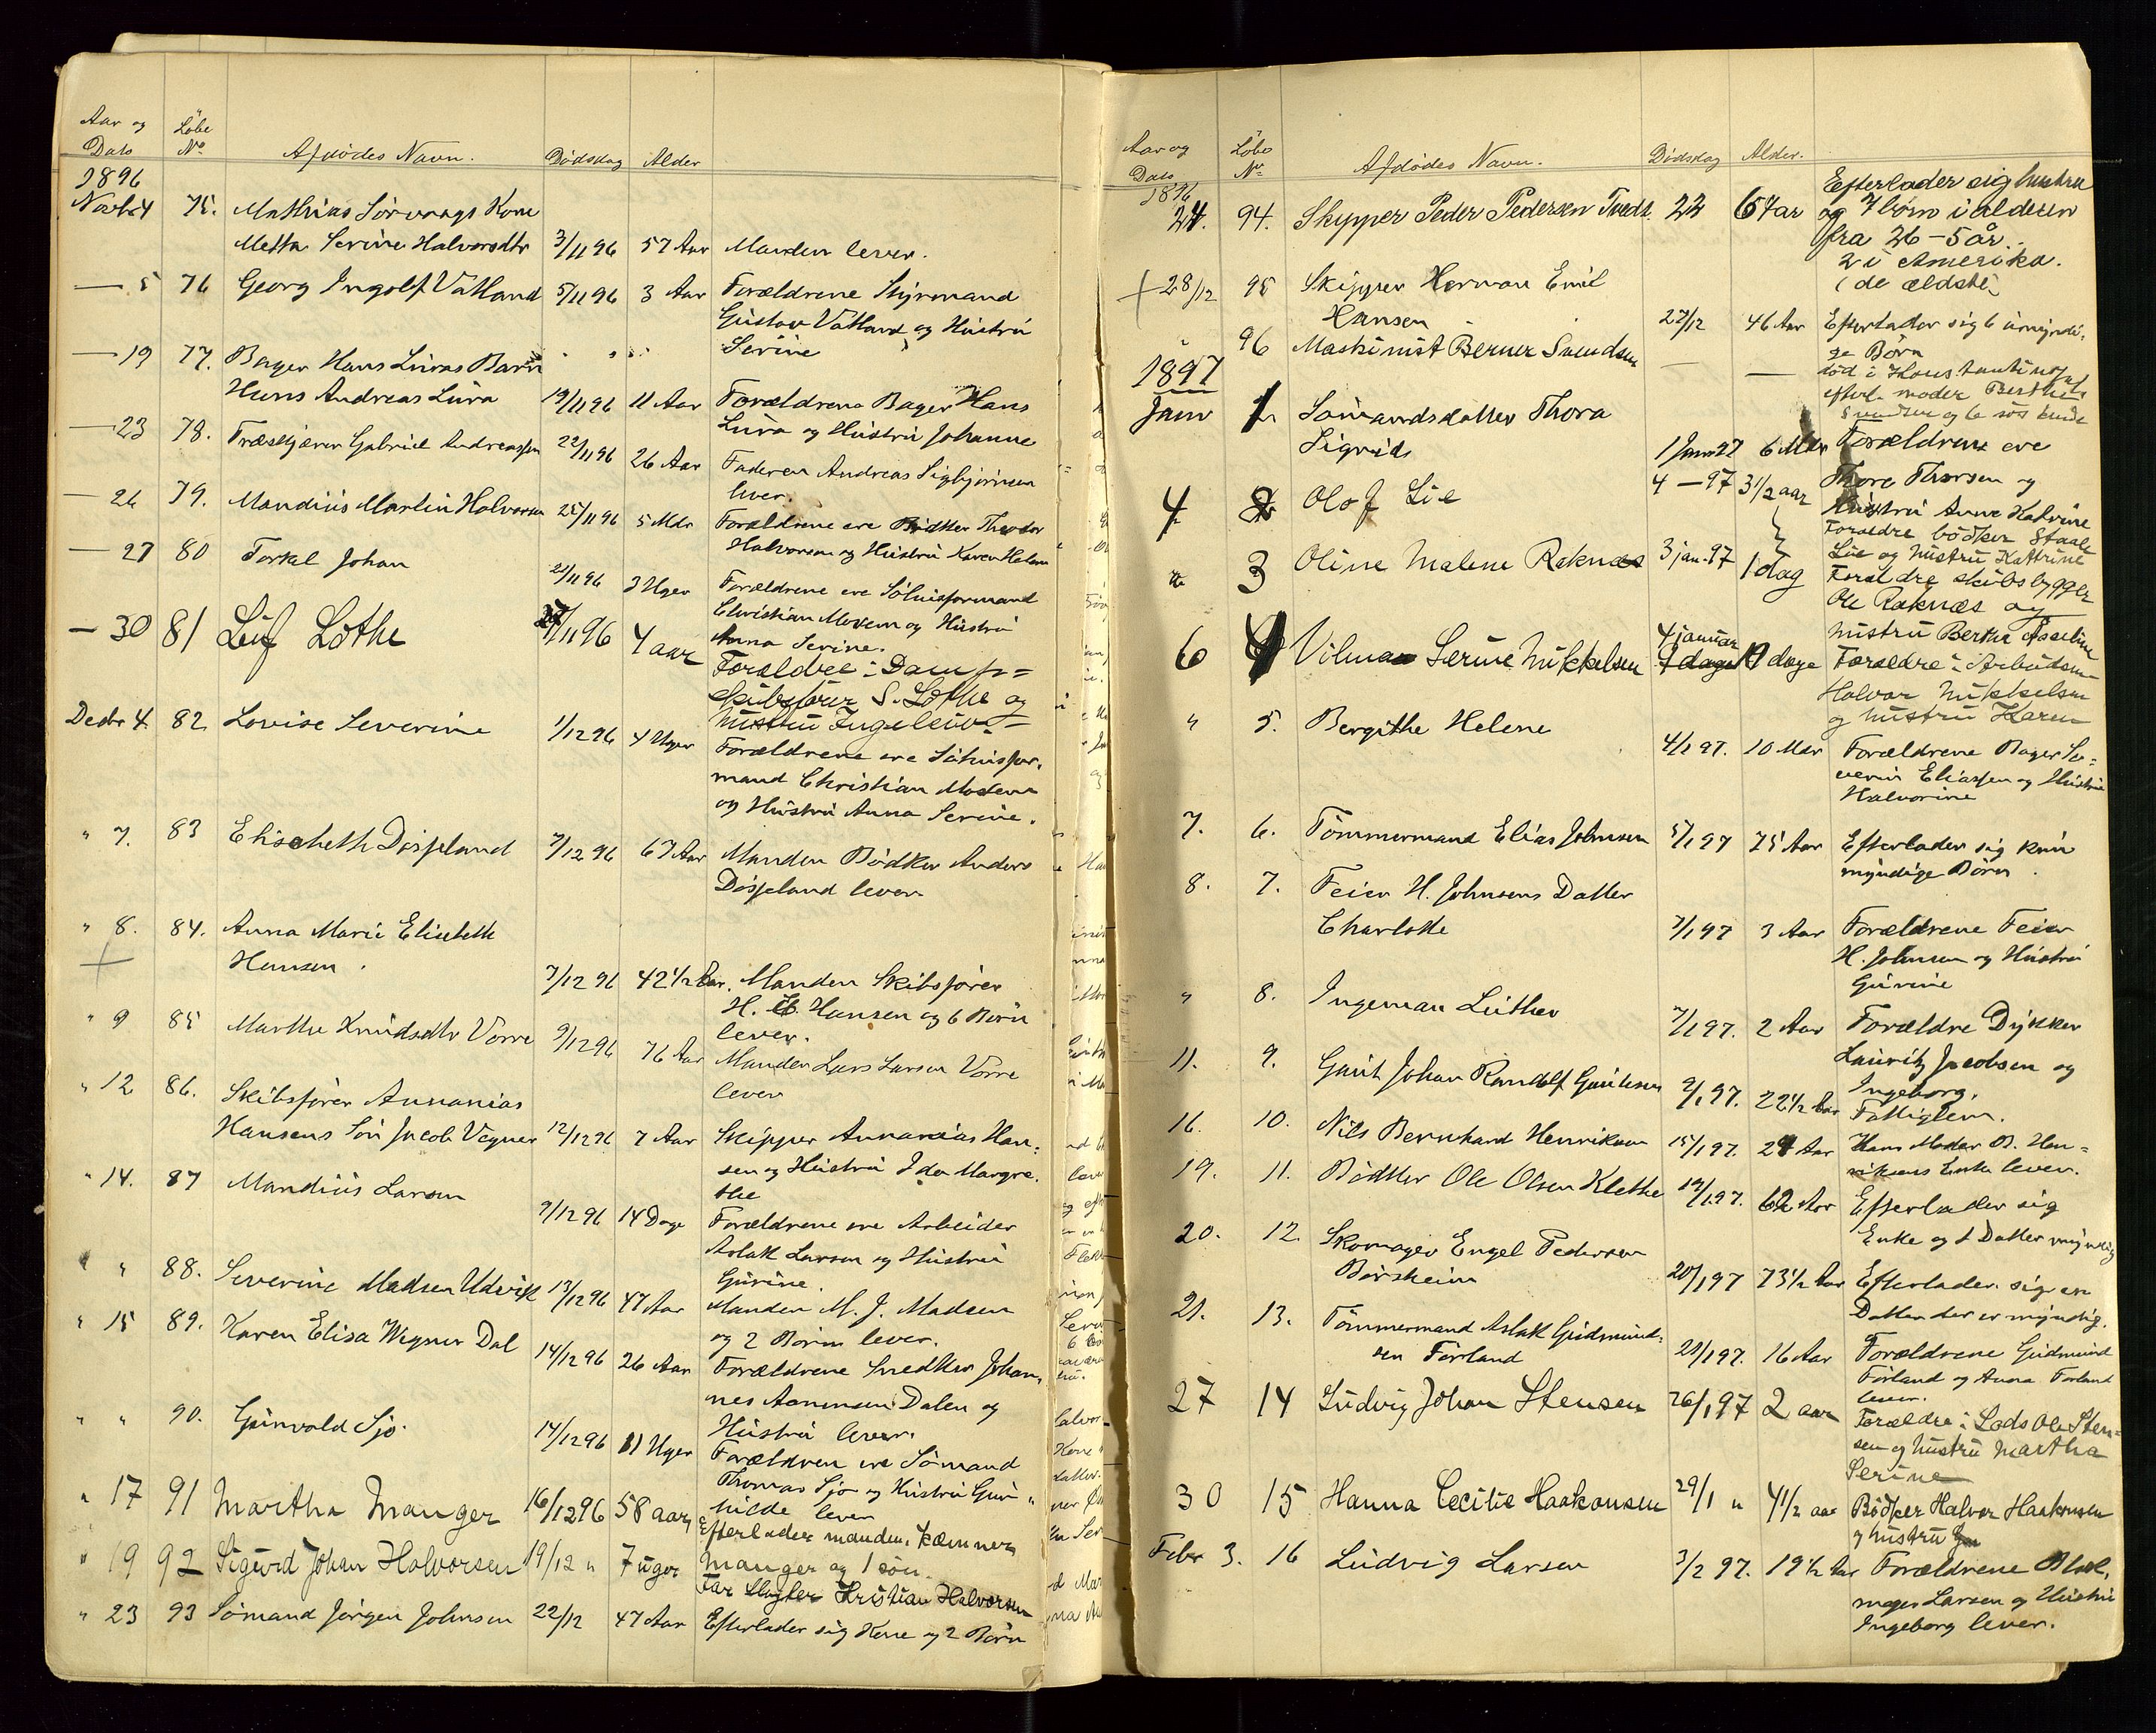 Aar og Dato Löbe No Afdödes Navn. Dödsdag Alder
1896
Novbr 4 75. Mathias Sörvaags Kone
Metta Serine Halvorsdtr 3/11 96 57 Aar Manden lever.
— 5 76 Georg Ingolf Vatland 5/11 96 3 Aar Forældrene Styrmand
Gustav Vatland og Hustru
Serine
— 19 77. Bager Hans Luras Barn
Hans Andreas Lura 19/11 96 11 Aar Forældrene Bager Hans
Lura og Hustru Johanne
— 23 78. Træskjærer Gabriel Andreassen 22/11 96 26 Aar Faderen Andreas Sigbjörnsen
lever.
— 26 79. Mandius Martin Halvorsen 25/11 96 5 Mdr Forældrene ere Bödker Theodor
Halvorsen og Hustru Karen Helene
— 27 80 Torkel Johan 21/11 96 3 Uger Forældrene ere
Christian og Hustru
Anna Serine.
— 30 81 Leif Lothe /11 96 4 aar Forældre: Damp=
skibsförer S. Lothe og
hustru Ingeleiv
Decbr 4. 82 Lovise Severine 1/12 96 4 Uger Forældrene ere
mand Christian
og Hustru Anna Serine.
" 7. 83 Elisabeth Døsjeland 7/12 96 67 Aar Manden Bödker Anders
Døsjeland lever
" 8. 84. Anna Marie Elisabeth
Hansen. 7/12 96 42 1/2 Aar. Manden Skibsförer
H. Hansen og 6 Börn
lever.
" 9 85 Marthe Knudsdtr Vorre 9/12 96 76 Aar Manden Lars Larsen Vorre
lever
" 12 86. Skibsförer Annanias
Hansens Sön Jacob Vegner 12/12 96 7 Aar Skipper Annanias Han=
sen og Hustru Ida Margre.
the
" 14. 87 Mandius Larsen 9/12 96 14 Dage Forældrene ere Arbeider
Aslak Larsen og Hustru
Gurine.
" " 88. Severine Madsen Udvik 13/12 96 47 Aar Manden M. J. Madsen
og 2 Börn lever.
" 15 89. Karen Elisa Wegner Dal 14/12 96 26 Aar Forældrene Snedker Johan,
nes Aanensen Dalen og
Hustru lever.
" " 90. Gunvald Sjo. 14/12 96 11 Uger Forældren ere Sömand
Thomas Sjo og Hustru Gun"
hilde lever
" 17 91 Martha Manger 16/12 96 58 aar, Efterlader manden, kæmner
Manger og 1 sön.
" 19 92 Sigurd Johan Halvorsen 19/12 " 7 uger Far Slagter Kristian Halvorsen
" 23 93 Sömand Jörgen Johnsen 22/12 47 Aar Efterlader sig Kone og 2 Börn
Aar og Dato Löbe No Afdödes Navn. Dödsdag Alder.
1896
24. 94. Skypper Peder Pedersen Tvedt. 22 67 ar Efterlader sig hustru
og 7 börn i alderen
fra 26 — 5 år.
2 i Amerika.
(de ældste)
+ 28/12 95 Skipper Herman Emil
Hansen 27/12 46 Aar Efterlader sig 6 umyndi.
ge Börn
96 Maskinist Berner Svendsen — — död i
efterl. moder Berthe
og 6 söskende
1897
Janr 1 Sömandsdatter Thora
Sigrid 1 Janr 97 6 Mdr Forældrene ere
Thore Thorsen og
Hustru Anne Katrine
4 2 Olof Lie 4 — 97 3 1/2 aar Forældre bödker Staale
Lie og hustru Kathrine
" 3 Oline Malene Raknæs 3 jan. 97 1 dag Foraldre skibsbygger
Ole Raknæs og
hustru Bertha Asseline
6 4 Vilma Serine Mikkelsen 4 januar 9 dage Forældre: Arbeidsm
Halvor Mikkelsen
og hustru Karen
" 5. Bergithe Helene 4/1 97. 10 Mdr Forældrene Bager Se=
verin Eliassen og Hustru
Halvorine
7. 6. Tömmermand Elias Johnsen 5/1 97 75 Aar Efterlader sig kun
myndige Börn.
8. 7. Feier H. Johnsens Datter
Charlotte 7/1 97 3 Aar Forældrene Feier
H. Johnsen og Hustru
Gurine
" 8. Ingeman Luther 7/1 97. 2 Aar Forældre Dykker
Lauritz Jacobsen og
Ingeborg.
11. 9. Gaut Johan Randolf Gautesen 9/1 97. 22 1/2 Aar Fattiglem.
16. 10. Nils Bernhard Henriksen 15/1 97. 24 Aar Hans Moder B. Hen=
riksens Enke lever.
19. 11. Bödker Ole Olsen Klethe 19/1 97. 62 Aar Efterlader sig
Enke og 1 Datter myndig
20. 12. Skomager Engel Pedersen
Börsheim 20/1 97 73 1/2 Aar Efterlader sig en
Datter der er myndig.
21. 13. Tömmermand Aslak Gudmund=
sen Förland 21/1 97. 16 Aar Forældrene Gudmund
Förland og Anna Förland
lever.
27 14 Ludvig Johan Stensen 26/1 97 2 aar Forældre: Lods Ole Sten=
sen og hustru Martha
Serine
30 15 Hanna Cecilie Haakonsen 29/1 " 4 1/2 aar Bödker Halvor Haakonsen
og hustru
Febr 3. 16 Ludvig Larsen 3/2 97. 19 1/2 Aar Forældrene Blok,
mager Larsen og Hustru
Ingeborg lever.